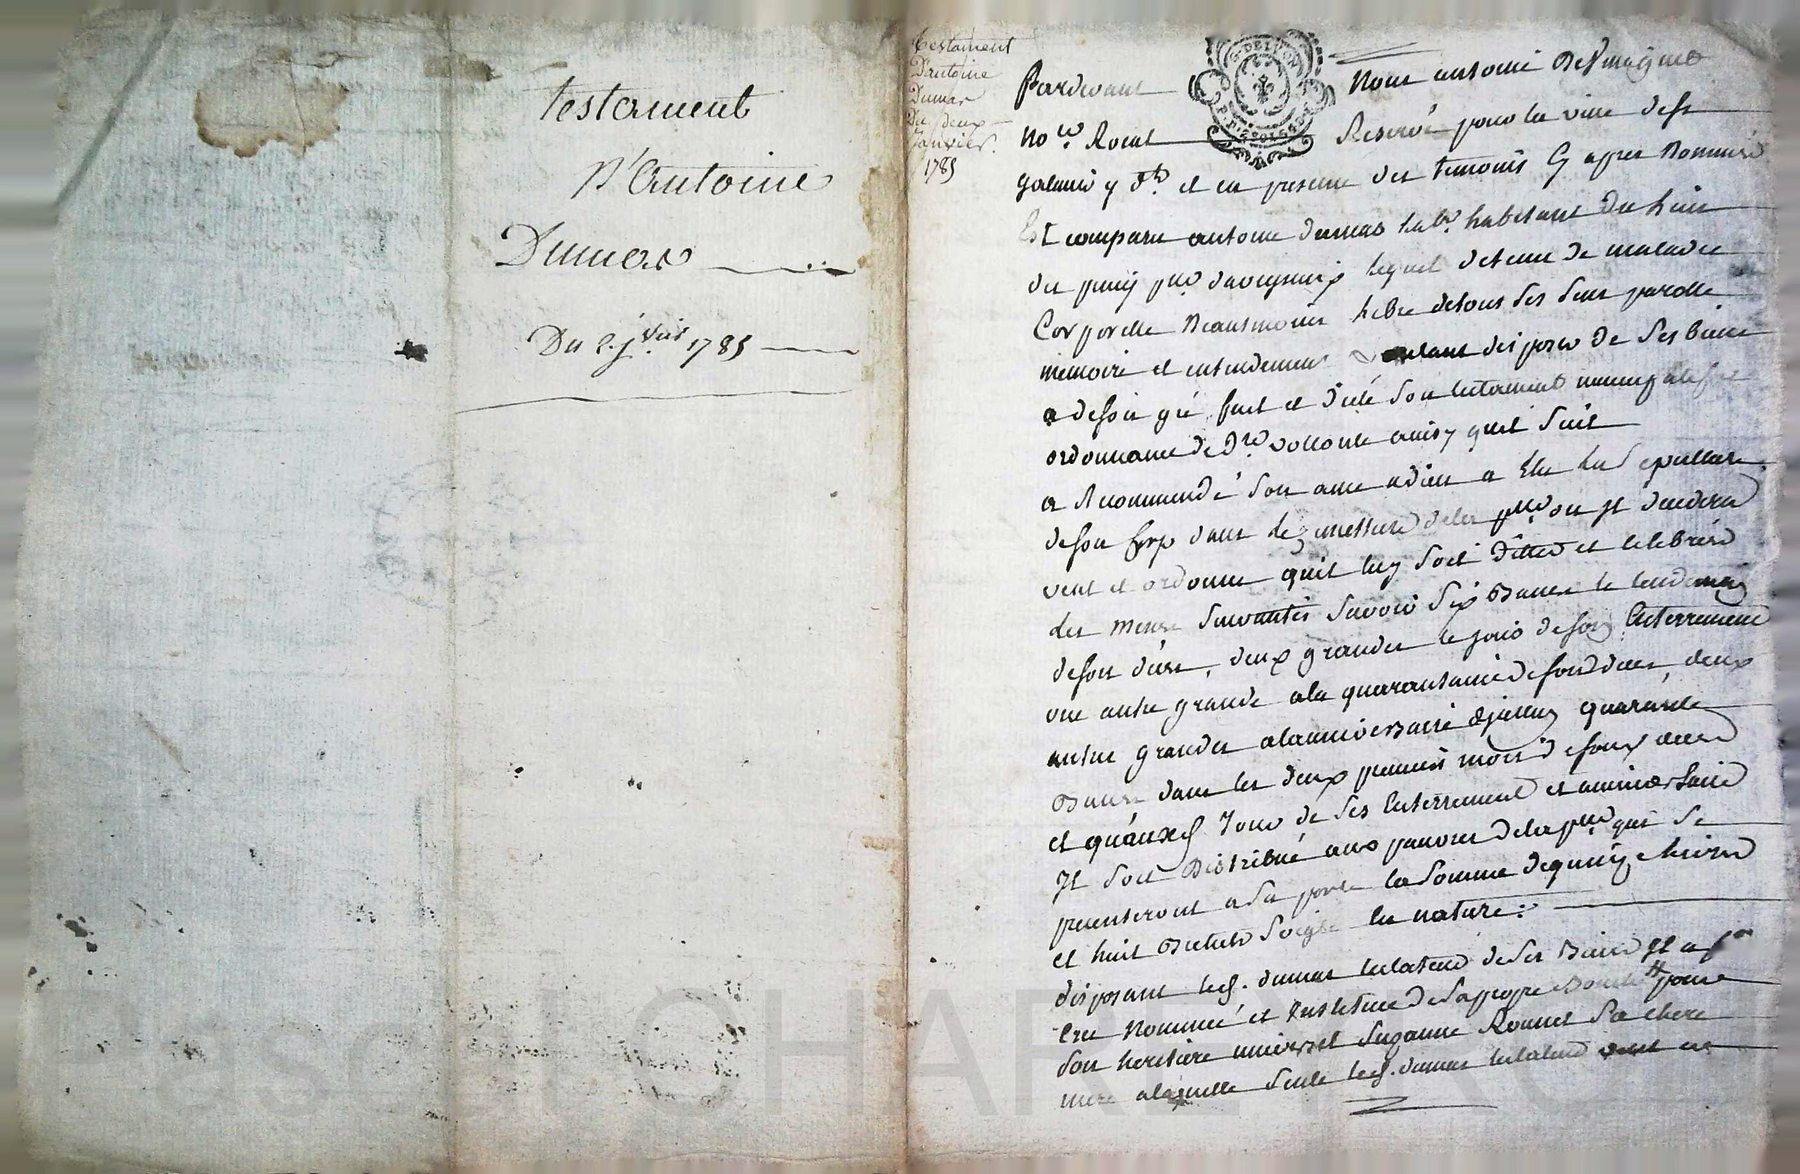 testament
D'Antoine
Dumas
Du 2. jvier 1785
testament
D'antoine
Dumas
Du deux
Janvier
1785
G. DE LYON
Pardevant Nous antoine
Nore. Royal Reservé pour la ville de st
galmier y et en presence des temoins Cy apres Nommés
Est comparu antoine dumas labr. habitant du lieu
du lequel detenu de maladie
Corporelle Neantmoins libre de tous ses sens parolle
memoire et entendement voulant disposer de ses biens
a de son gré fait et dicté son testament nuncupatif
ordonnance de dre. vollonté ainsy quil suit
a Recommandé son ame a dieu a Elu la Sepulture
de son Corp dans le de la psse. ou Jl decedera
veut et ordonne quil luy soit dittes et celebrées
les messes suivantes savoir six Basses le lendemain
de son dècès, deux grandes le jour de son Enterrement
une autre grande a la quarantaine de son deces, deux
autres grandes a lanniversaire quarante
Basses dans les deux premiers mois de son deces
et quaux Jour de ses Enterrement et anniversaire
Jl soit Distribué aux pauvres de la psse. qui se
presenteront a sa porte la somme de quinze livres
et huit Bichets Seigle En nature:
disposant led. dumas testateur de ses Biens Jl a
Cree Nommé et Institue De sa propre Bouche pour
son heritiere universel Suzanne sa chere
mere a laquelle seule led. dumas testateur veut